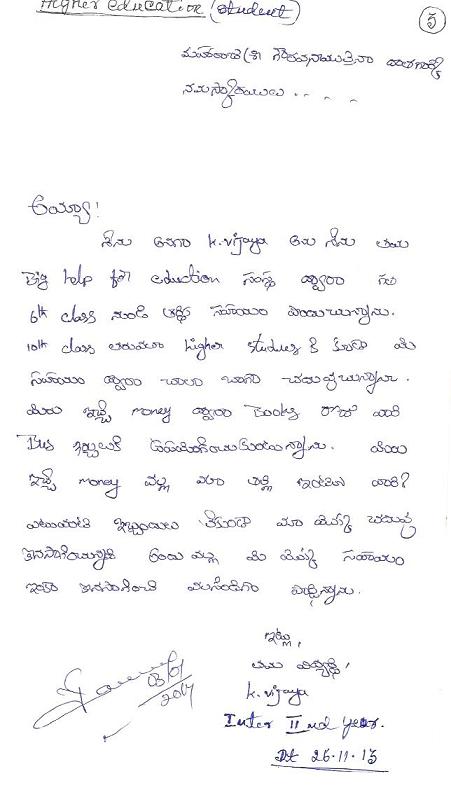 Higher education (student)
5
మహారాజశ్రీ గౌరవనీయులైన గారికి
నమస్కారములు . . . .
అయ్యా!
నేను అనగా k. vijaya అను నేను తమ
Big help for eduction సంస్థ ద్వారా గత
6th class నుండి ఆర్థిక సహాయం పొందుచున్నాను.
10th class తరువాత higher studies కి కూడా మీ
సహాయం ద్వారా చాలా బాగా చదువుచున్నాను.
మీరు ఇచ్చే money ద్వారా Books కొరకు వాటి
Bus ఖర్చులకి ఉపయోగించుకుంటున్నాను. మీరు
ఇచ్చే money వల్ల మా తల్లి
ఎటువంటి ఇబ్బందులు లేకుండా మా యొక్క చదువు
కొనసాగించుచున్నాము అందు వల్ల మీ యొక్క సహాయం
ఇలా కొనసాగించి
ఇట్లు,
తమ విద్యార్థి,
k. vijaya
Inter II nd year.
Dt 26.11.13
03/01
2014